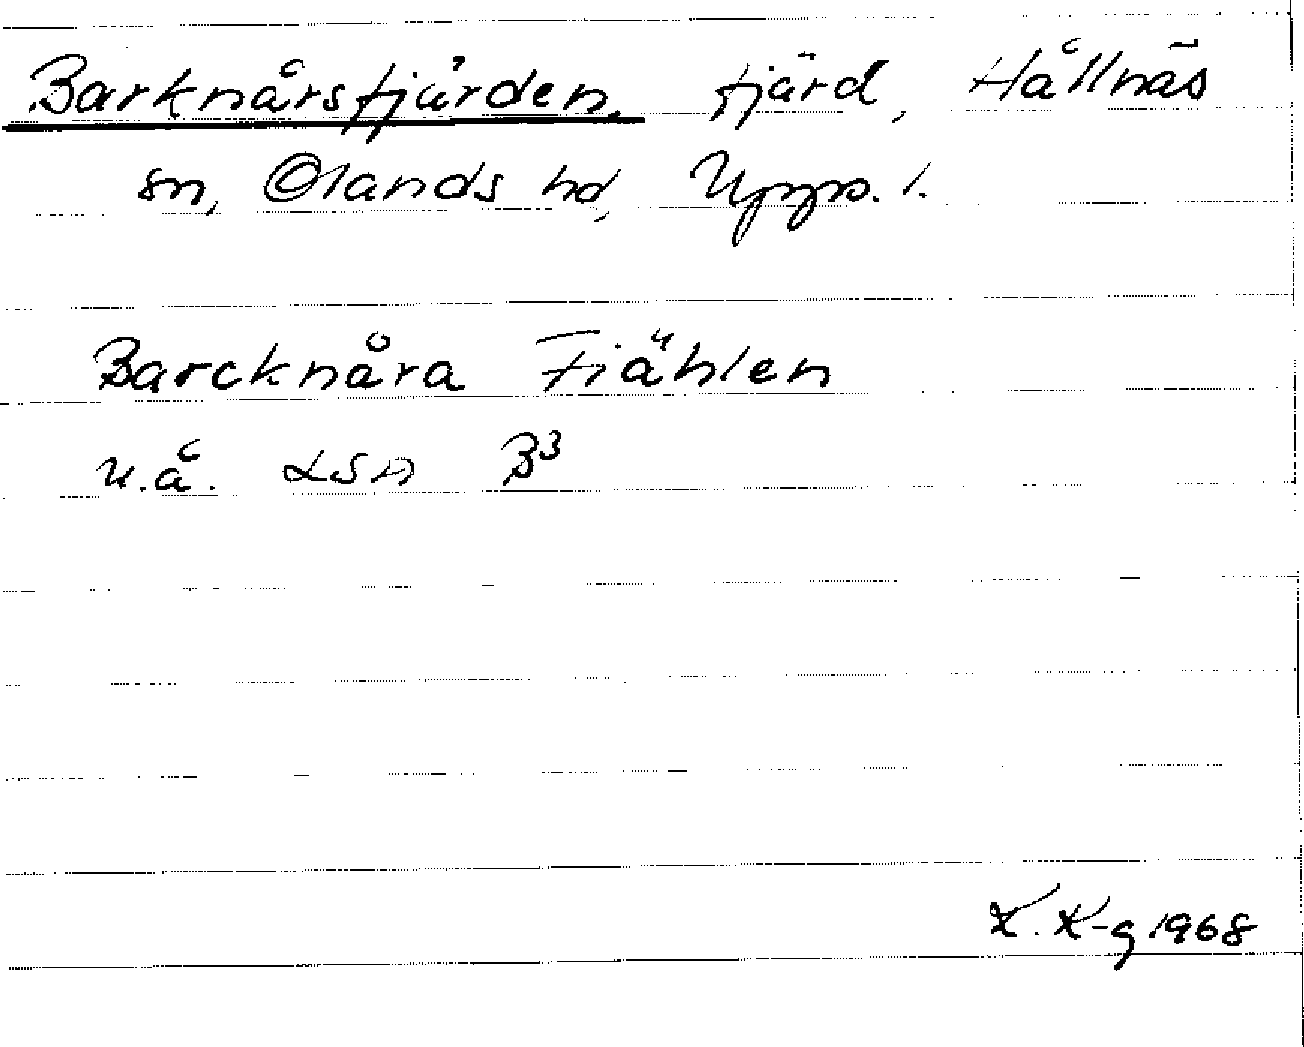 Barknårsfjärden, fjärd, Hållnäs
sn, Olands hd, Upps. l.
Barcknåra Fiählen
u.å. LSA B3
K. K-g 1968